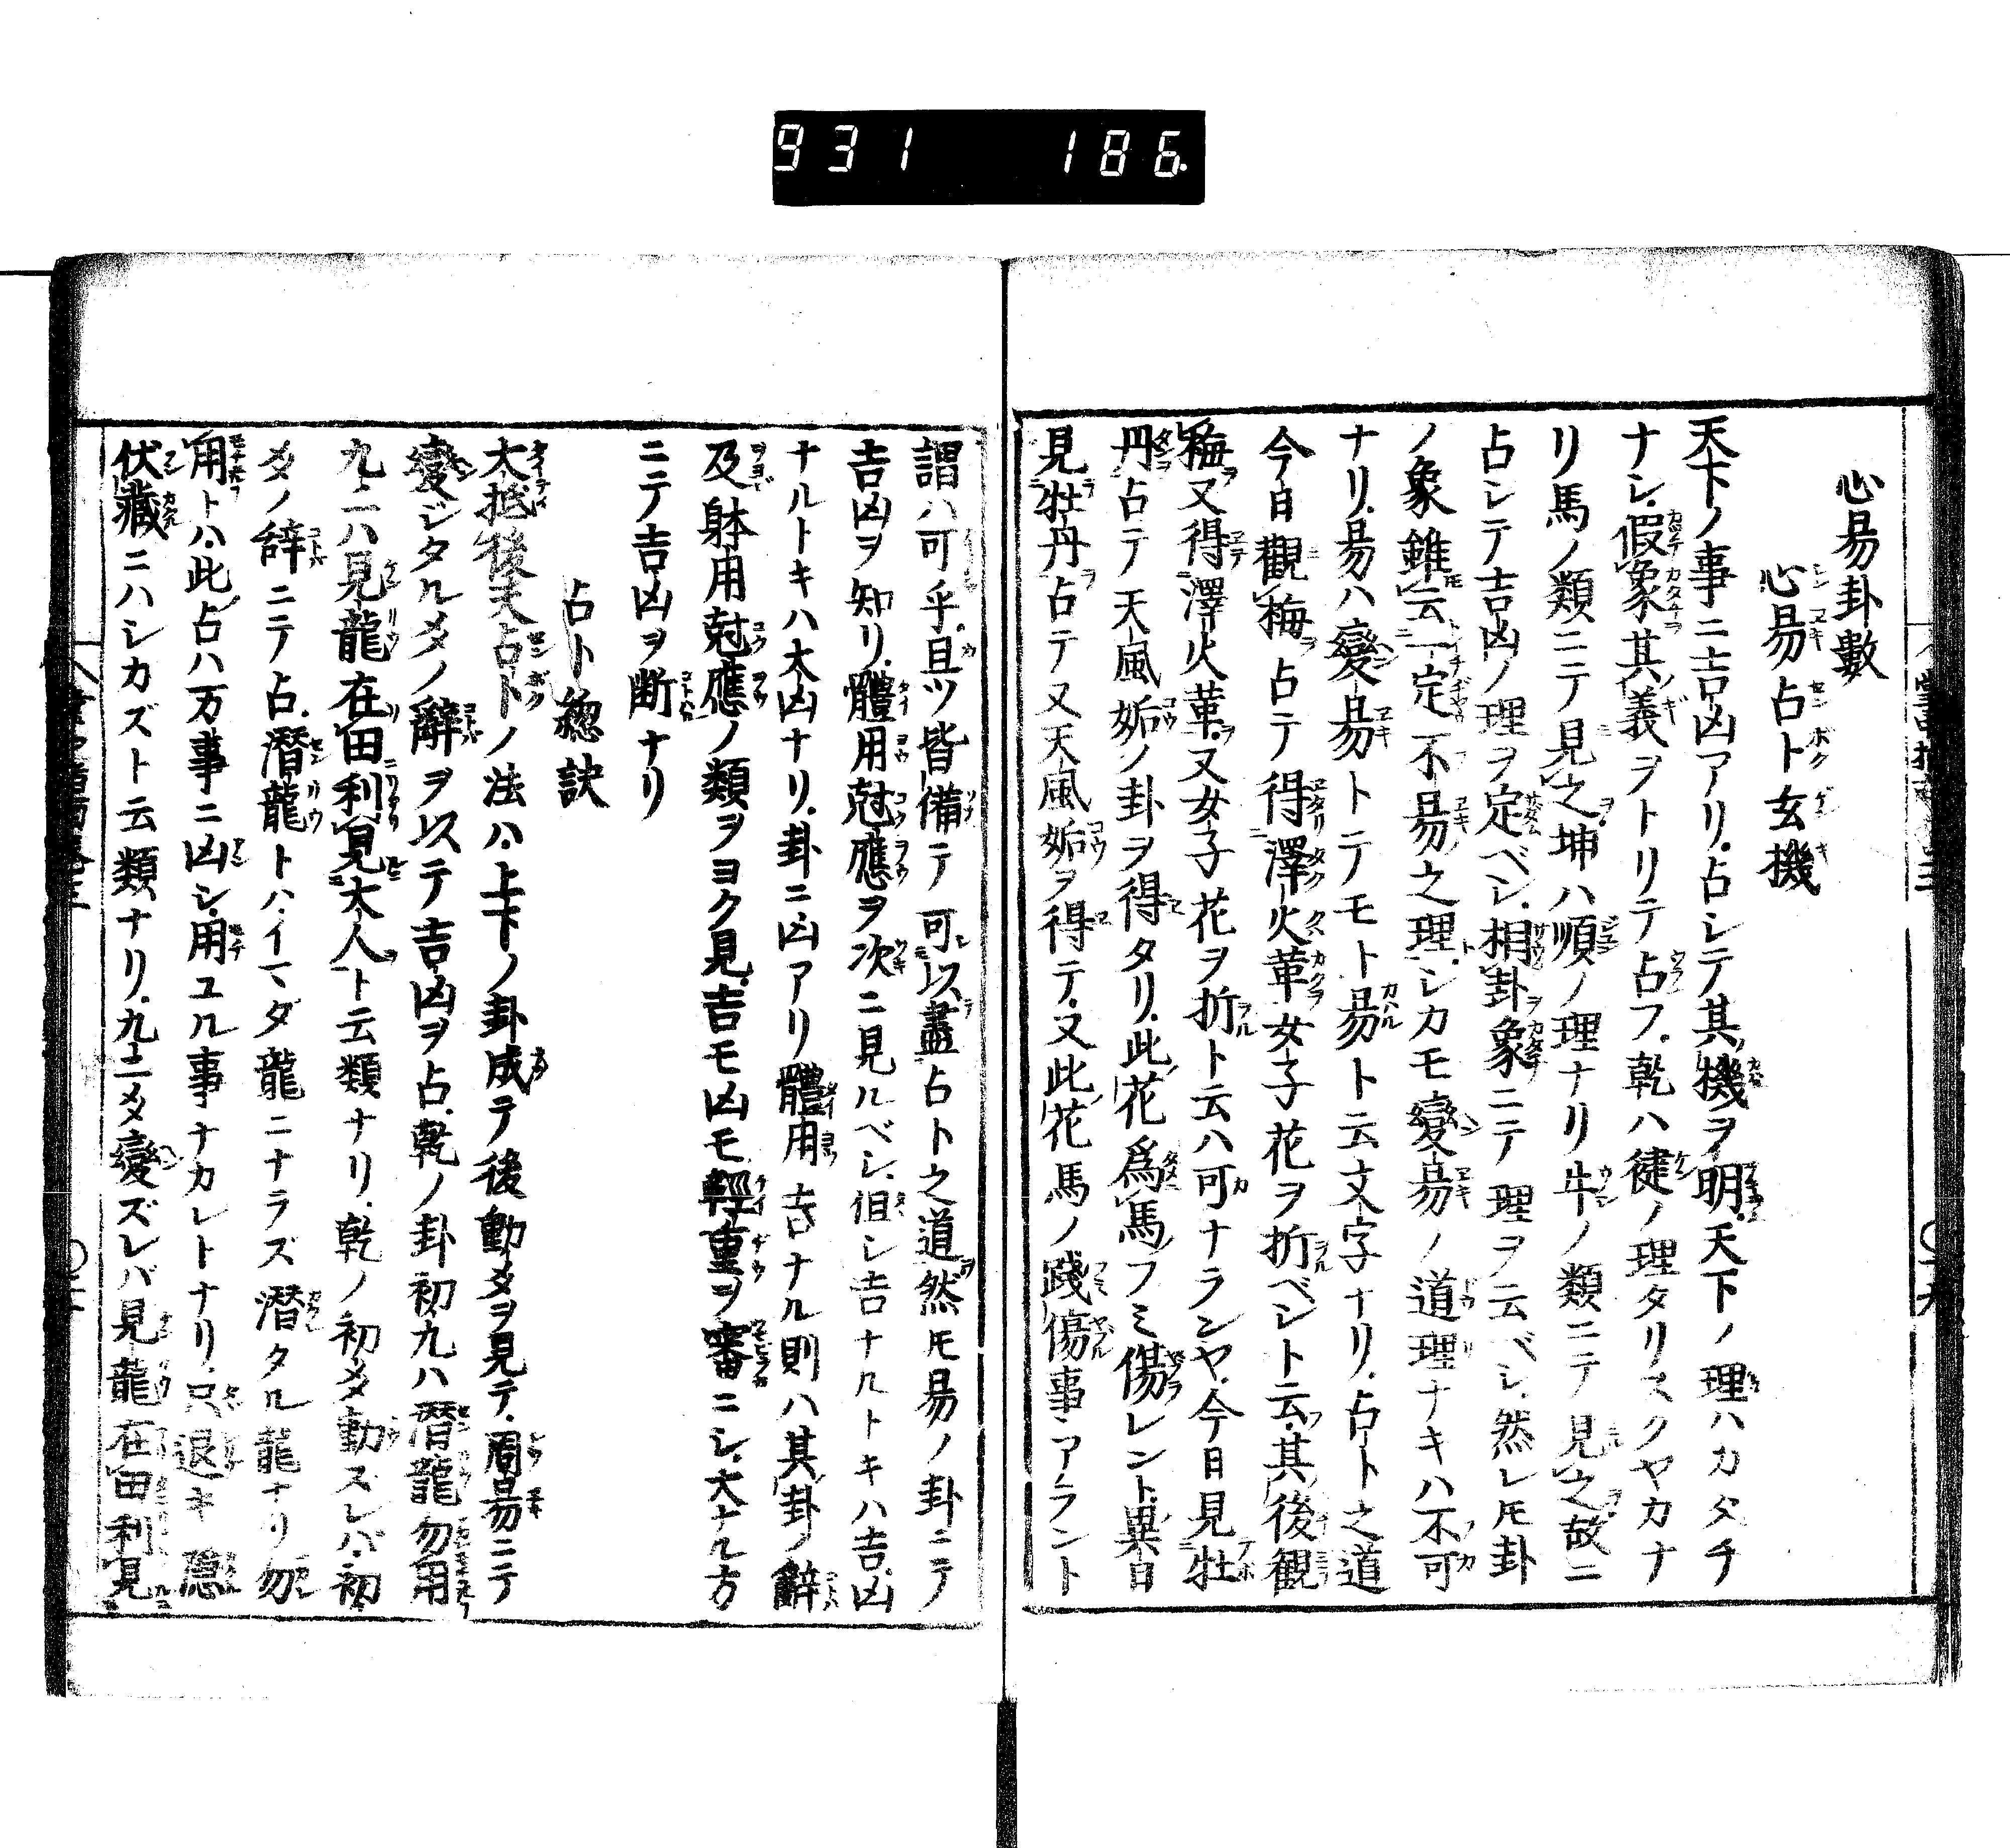 931 186
心易卦數
心易占卜玄機
天下ノ事ニ吉凶アリ占シテ其機ヲ明天下ノ理ハカタチ
ナシ假象其義ヲトリテ占フ乾ハ健ノ理タリスクヤカナ
リ馬ノ類ニテ見之坤ハ順ノ理ナリ牛ノ類ニテ見之故ニ
占シテ吉凶ノ理ヲ定ベシ相卦象ニテ理ヲ云ベシ然レ𪜈卦
ノ象雖云一定不易之理シカモ變易ノ道理ナキハ不可
ナリ易ハ變易トテモト易ト云文字ナリ占卜之道
今日觀梅占テ得澤火革女子花ヲ折ベシト云其後観
梅又得澤火革又女子花ヲ折ト云ハ可ナランヤ今日見牡
丹占テ天風姤ノ卦ヲ得タリ此花爲馬フミ傷レント異日
見牡丹占テ又天風姤ヲ得テ又此花馬ノ踐傷事アラント
謂ハ可乎且ツ皆備テ可以盡占卜之道然𪜈易ノ卦ニテ
吉凶ヲ知リ體用尅應ヲ次ニ見ルベシ徂シ吉ナルトキハ吉凶
ナルトキハ大凶ナリ卦ニ凶アリ體用吉ナル則ハ其卦ノ辭
及躰用尅應ノ類ヲヨク見吉モ凶モ輕重ヲ審ニシ大ナル方
ニテ吉凶ヲ断ナリ
占卜總訣
大抵後天占卜ノ法ハ上下ノ卦成テ後動メヲ見テ周易ニテ
變ジタルメノ辭ヲ以テ吉凶ヲ占乾ノ卦初九ハ潜龍勿用
九二ハ見龍在田利見大人ト云類ナリ乾ノ初メ動ズレバ初
メノ辞ニテ占潜龍トハイマダ龍ニナラズ潜タル龍ナリ勿
用トハ此占ハ万事ニ凶シ用ユル事ナカレトナリ只退キ隠
伏藏ニハシカズト云類ナリ九二メ變ズレバ見龍在田利見